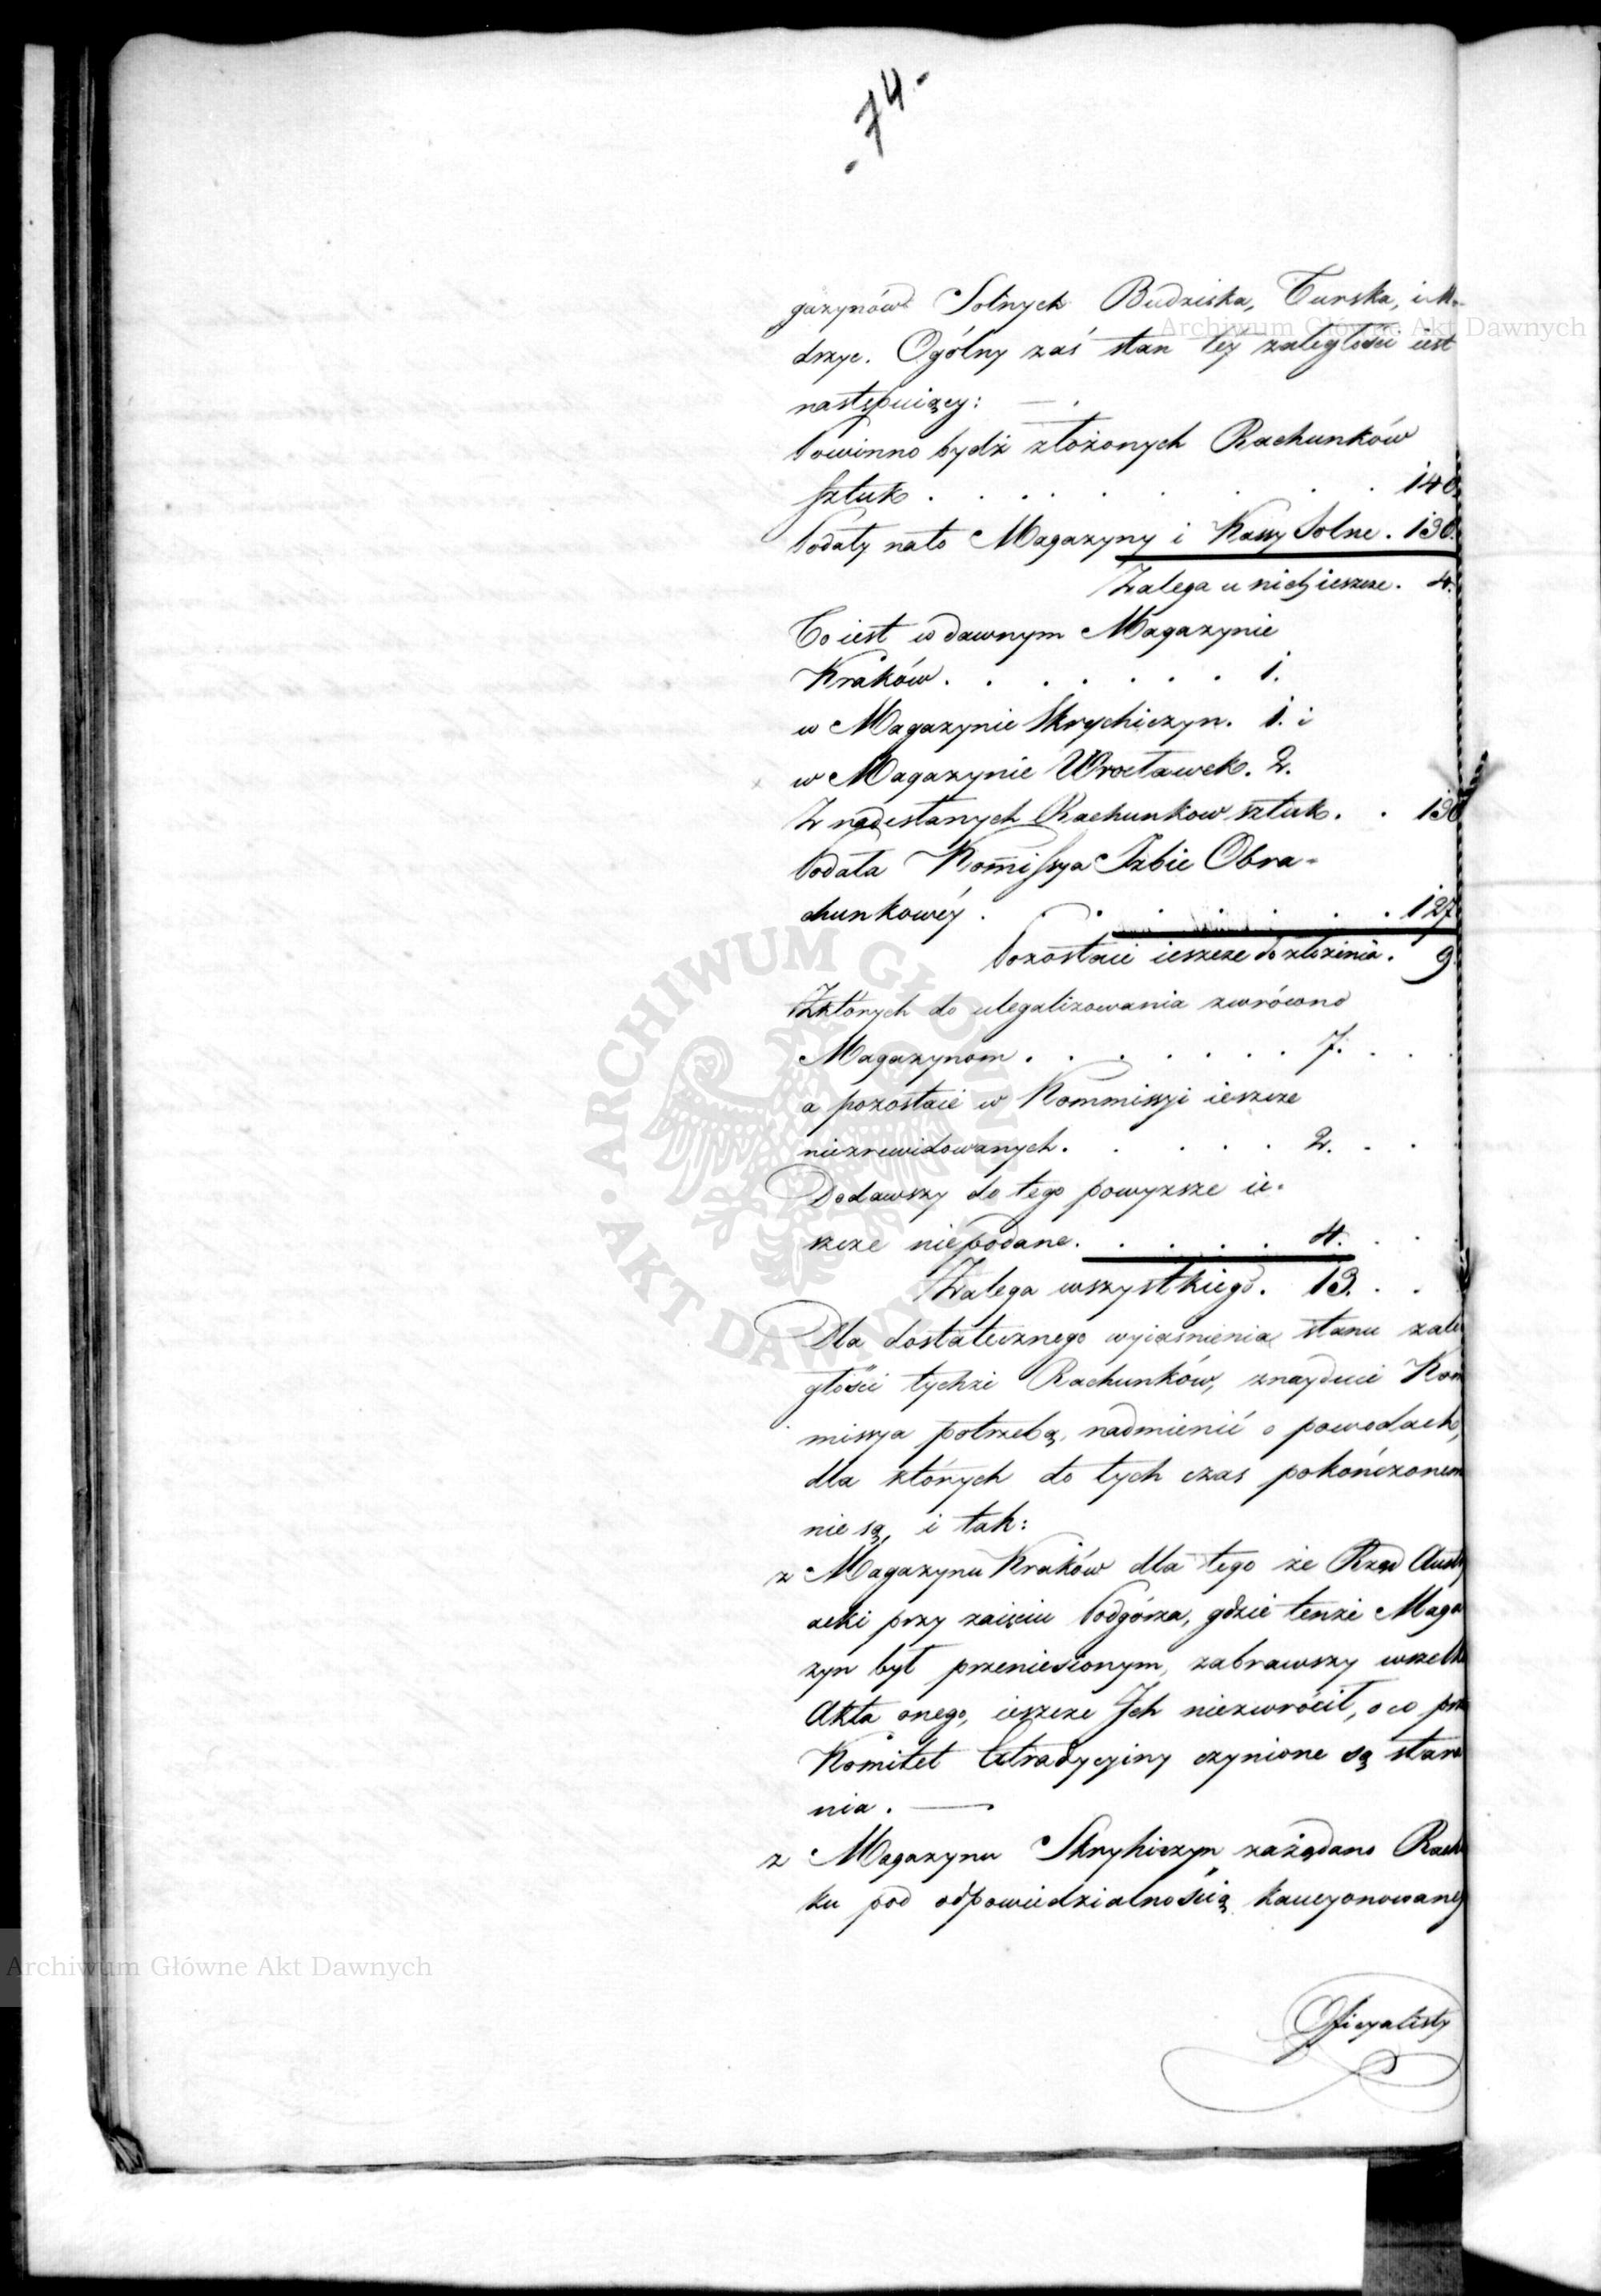 .74.
gazynów Solnych Budziska, Turska, i M-
drzyc. Ogólny zaś stan tey zaległości iest
następuiący: —
Powinno bydź złożonych Rachunków
sztuk . . . . . . . . 140.
Podały na to Magazyny i Kassy Solne . 136.
Zalega u nich ieszcze . 4.
To iest w dawnym Magazynie
Kraków . . . . . . . 1.
w Magazynie Skrychiczyn . 1. i
w Magazynie Wrocławek . 2.
Z nadesłanych Rachunkow sztuk . . 136
Podała Kommissya Izbie Obra-
chunkowéy . . . . . . . 127
Pozostaie ieszcze do złożenia . 9
Z których do ulegalizowania zwrócono
Magazynom . . . . . . . 7. . . .
a pozostaie w Kommissyi ieszcze
niezrewidowanych . . . . . 2. . . .
Dodawszy do tego powyższe ie-
szcze niepodane . . . . . 4. . . .
Zalega wszystkiego . 13. . .
Dla dostatecznego wyiaśnienia stanu zale
głości tychże Rachunków, znayduie Kom
missya potrzebą, nadmienić o powodach,
dla których do tych czas pokończonem
nie są, i tak:
z Magazynu Kraków dla tego że Rząd Austr
acki przy zaięciu Podgórza, gdzie tenże Maga
zyn był przeniesionym, zabrawszy wszelk
Akta onego, ieszcze Ich niezwrócił, o co prz
Komitet Extradycyiny czynione są stara
nia . —
z Magazynu Skryhiczyn zażądano Rach
ku pod odpowiedzialnością kaucyonowaney
Officyalisty
Archiwum Główne Akt Dawnych
ARCHIWUM GŁÓWNE AKT DAWNYCH
Archiwum Główne Akt Dawnych